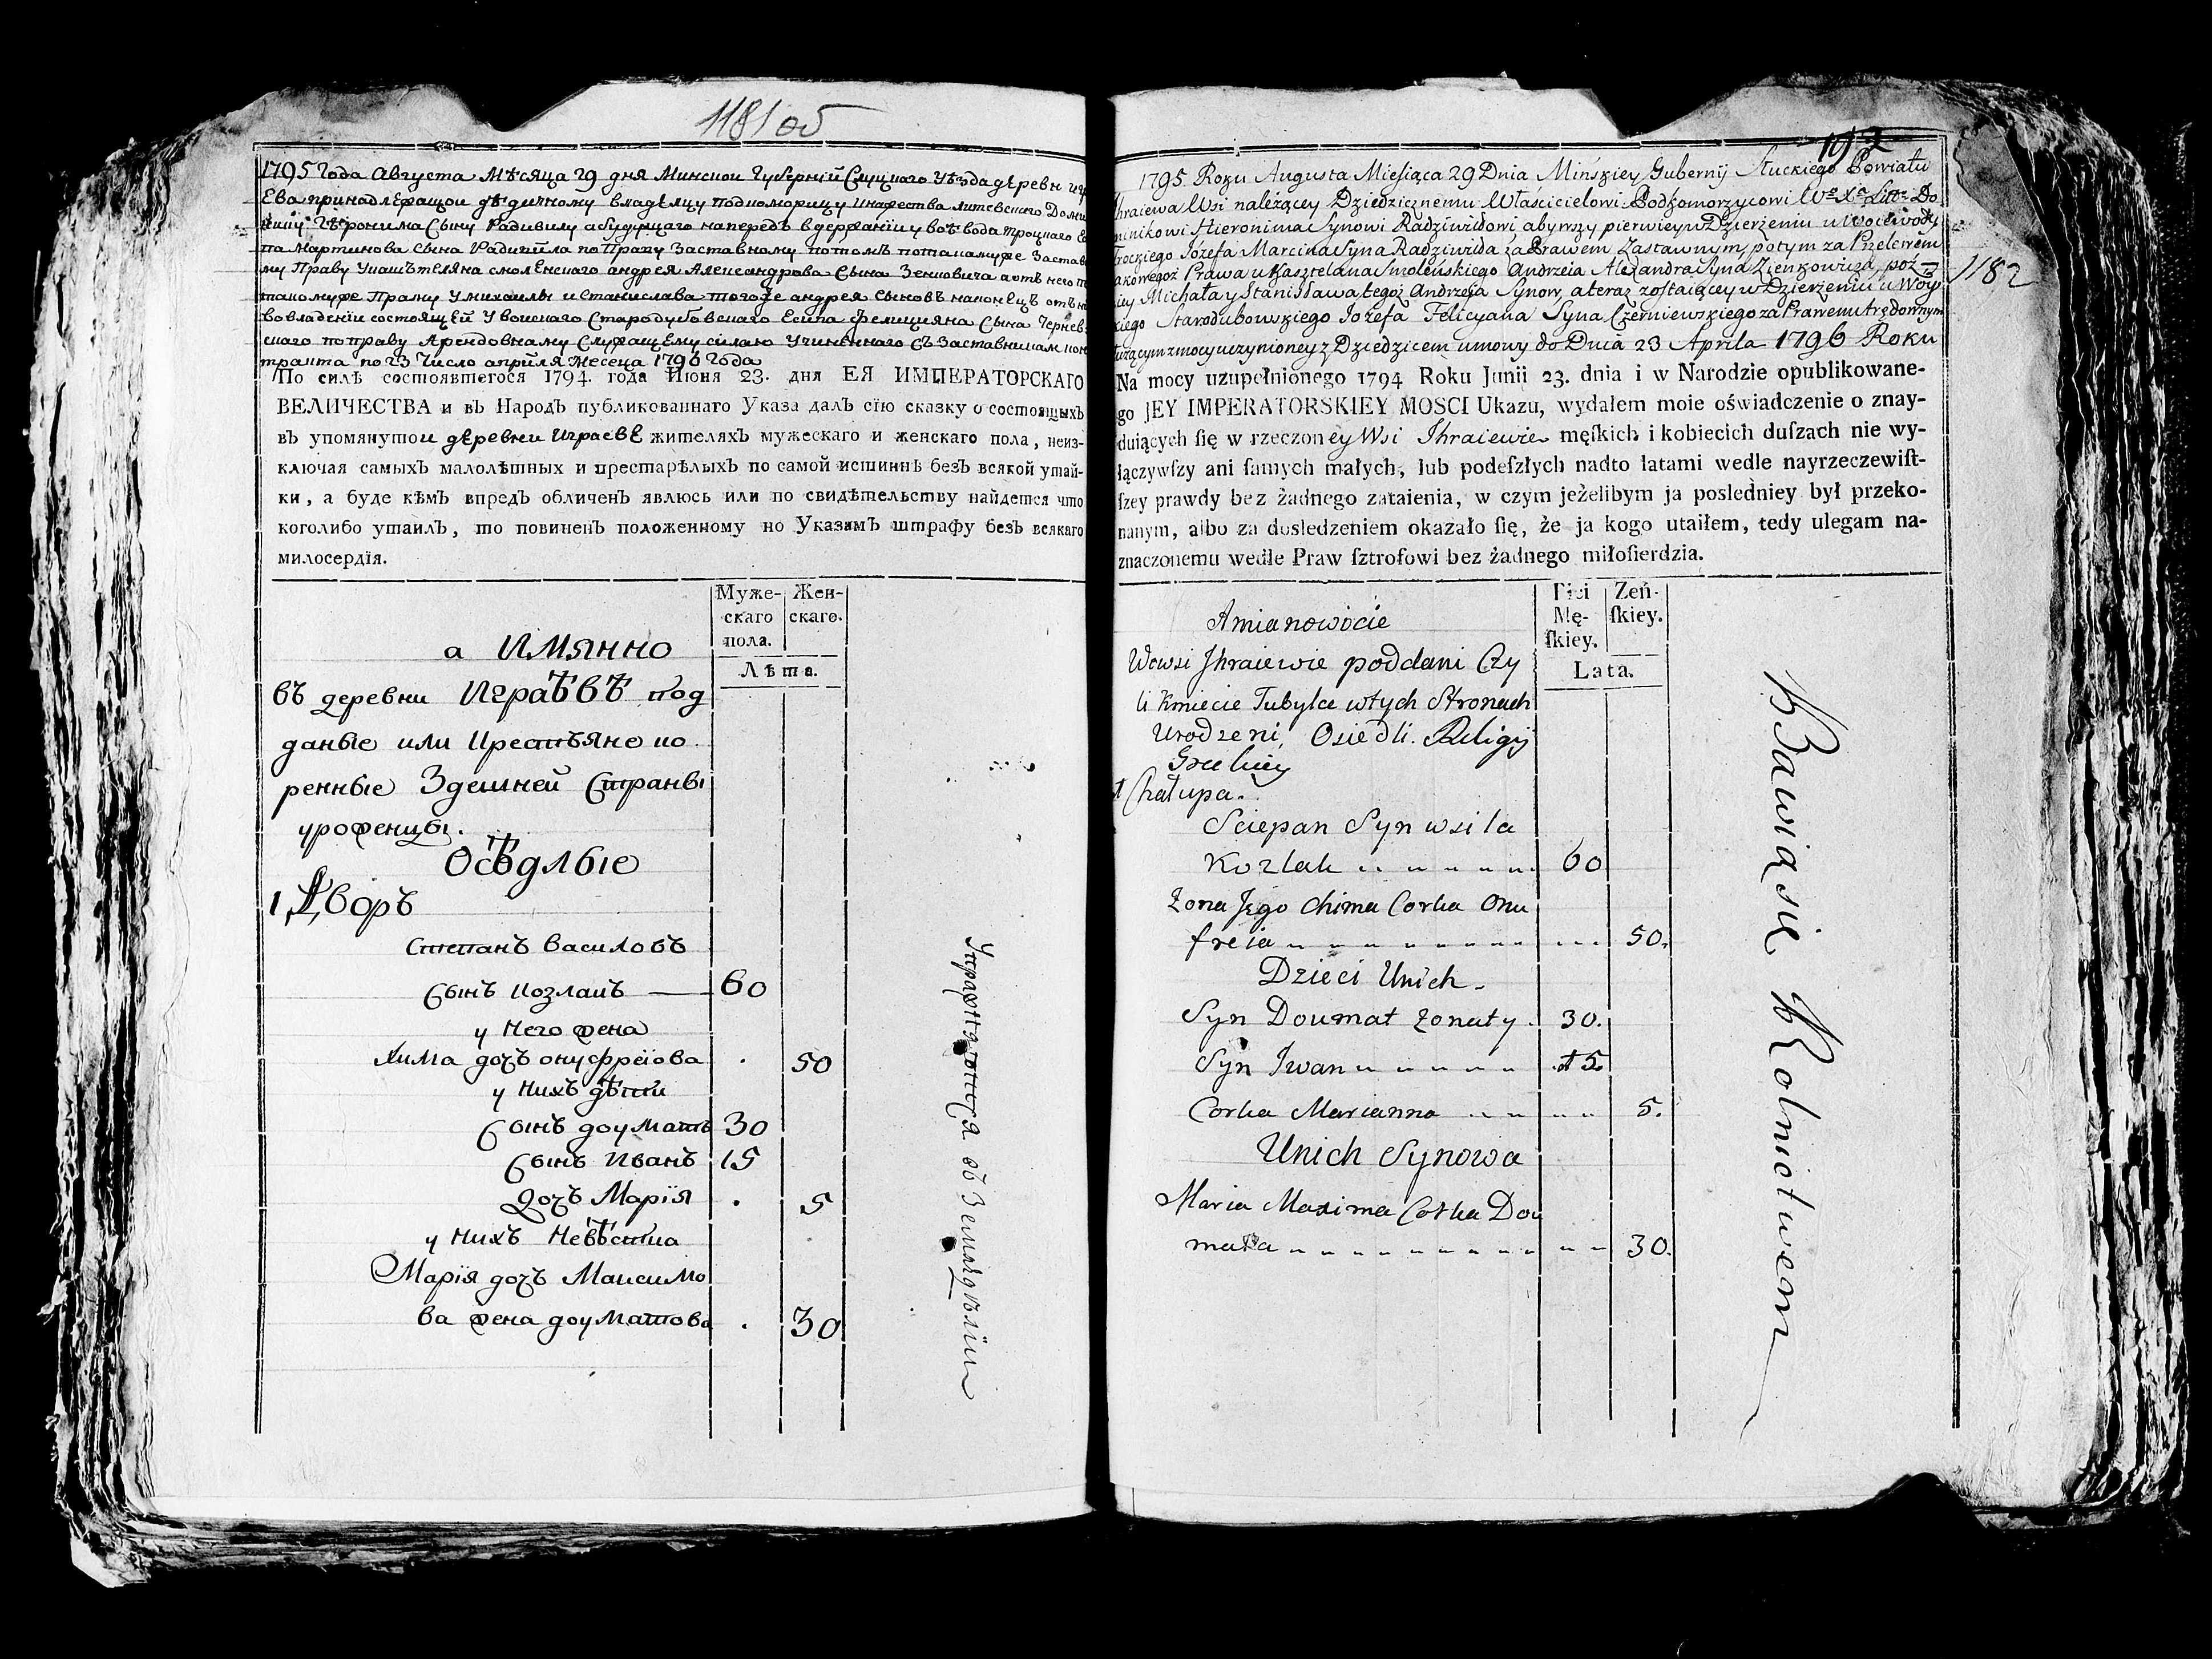 1181 об
1795 Года Августа Мѣсяца 29 дня Минской Губерній Слуцкаго Уѣзда дѣревни Игра
Ева принадлежащои дѣдичному владѣлцу подкоморицу Княжества литовскаго Доми
нику Іѣронима Сыну Радивилу а будущаго напередъ в держаніи у воѣвода Троцкаго
па Мартинова Сына Радивила по Праву Заставному потомъ потакомуже Застав
му Праву у каштеляна смоленскаго андрея Александрова Сына Зенковича а отъ него
такомуже Праву у михаилы и Станислава тогоже андрея сыновъ наконецъ отъ
во владеніи состоящей у воискаго Стародубовскаго Есипа фелицияна Сына Чернев
скаго по праву Арендовному Служащему силою учиненнаго съ Заставникам кон
тракта по 23 число апрѣля месеца 1796 Года
По силѣ состоявшегося 1794. года Июня 23. дня ЕЯ ИМПЕРАТОРСКАГО
ВЕЛИЧЕСТВА и въ Народъ публикованнаго Указа далъ сїю сказку о состоящыхъ
въ упомянутои дѣревни Играевѣ жителяхъ мужескаго и женскаго пола, неиз-
ключая самыхъ малолѣтныхъ и престарѣлыхъ по самой истиннѣ безъ всякой утай-
ки, а буде кѣмъ впредъ обличенъ явлюсь или по свидѣтельству найдется что
коголибо утаилъ, то повиненъ положенному по Указамъ штрафу безъ всякаго
милосердїя.
Муже-
скаго
пола.
Жен-
скаго.
Лѣта.
а имянно
въ деревни Играѣвѣ под
даные или Крестьяне ко
ренные Здешней Страны
уроженцы.
Осѣдлые
1, Дворъ
Степанъ василовъ
Сынъ Козлакъ — 60
у него жена
Хима дочь онуфреіова . 50
у нихъ дѣти
Сынъ доуматъ 30
Сынъ Иванъ 15
дочъ Марїя . 5
у нихъ Невѣстка
Марїя дочъ Максимо
ва жена доуматова . 30
Упражняются въ Земляделїи
1182
1795 Roku Augusta Miesiąca 29 Dnia Minskiey Gubernij Słuckiego Powiatu
Ihraiewa Wsi należącey Dziedzicznemu Właścicielowi Podkomorzycowi Wo Xa Litt: Do
minikowi Hieronima Synowi Radziwiłłowi, abywszy pierwiey w Dzierżeniu u Woiewody
Trockiego Józefa Marcina Syna Radziwiłła za Prawem Zastawnym, potym za Przelewem
takowegoż Prawa u Kasztelana Smoleńskiego Andrzeia Alexandra Syna Zienkowicza, poź
niey Michała y Stanisława tegoż Andrzeja Synow, a teraz zostaiącey w Dzierżeniu u Woy
skiego Starodubowskiego Jozefa Felicyana Syna Czerniewskiego za Prawem Arędownym
służącym z mocy uczynioney z Dziedzicem umowy do Dnia 23 Aprila 1796 Roku
Na mocy uzupełnionego 1794 Roku Junii 23. dnia i w Narodzie opublikowane-
go JEY IMPERATORSKIEY MOSCI Ukazu, wydałem moie oświadczenie o znay-
duiących ſię w rzeczoney Wsi Ihraiewie męſkich i kobiecich duſzach nie wy-
łączywſzy ani ſamych małych, lub podeſzłych nadto latami wedle nayrzeczewiſt-
ſzey prawdy bez żadnego zataienia, w czym jeżelibym ja posledniey był przeko-
nanym, albo za dosledzeniem okazało ſię, że ja kogo utaiłem, tedy ulegam na-
znaczonemu wedle Praw ſztrofowi bez żadnego miłoſierdzia.
Płci
Mę-
ſkiey.
Żeń-
ſkiey.
Lata.
Amianowicie
Wewsi Ihraiewie poddani Czy
li Kmiecie Tubylce w tych Stronach
Urodzeni, Osiedli. Religij
Greckiey
1 Chałupa.
Sciepan Syn wsila
Kozlak 60
Żona Jego Chima Corka Onu
freia 50.
Dzieci Unich.
Syn Doumat Żonaty. 30.
Syn Iwan 15
Corka Marianna 5.
Unich Synowa
Maria Maxima Corka Dou
mata 30.
Bawią się Rolnictwem